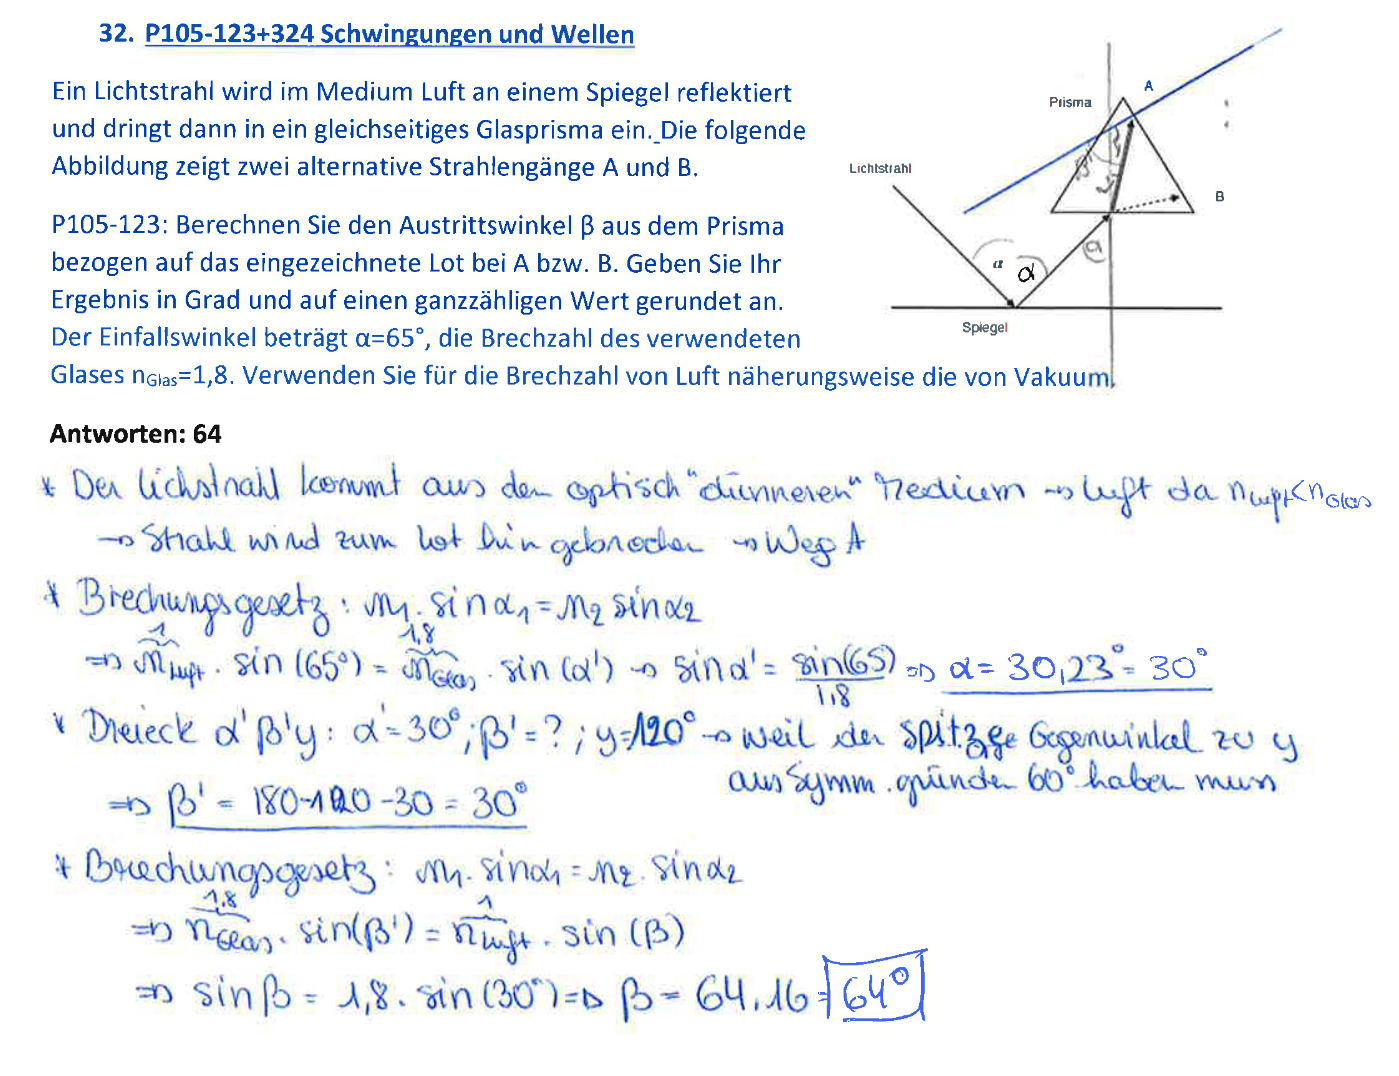 32. P105-123+324 Schwingungen und Wellen
Ein Lichtstrahl wird im Medium Luft an einem Spiegel reflektiert
und dringt dann in ein gleichseitiges Glasprisma ein. Die folgende
Abbildung zeigt zwei alternative Strahlengänge A und B.
P105-123: Berechnen Sie den Austrittswinkel β aus dem Prisma
bezogen auf das eingezeichnete Lot bei A bzw. B. Geben Sie Ihr
Ergebnis in Grad und auf einen ganzzähligen Wert gerundet an.
Der Einfallswinkel beträgt α=65°, die Brechzahl des verwendeten
Glases nGlas=1,8. Verwenden Sie für die Brechzahl von Luft näherungsweise die von Vakuum.
Prisma
A
Lichtstrahl
B
α
α
α
Spiegel
Antworten: 64
* Der Lichstrahl kommt aus dem optisch "dünneren" Medium → Luft da nLuft<nGlas
→ Strahl wird zum Lot hin gebrochen → Weg A
* Brechungsgesetz: n1 · sin α1 = n2 sin α2
1 1,8
⇒ nLuft · sin (65°) = nGlas · sin (α') → sin α' = sin(65)/1,8 ⇒ α = 30,23° = 30°
* Dreieck α'β'γ: α' = 30°; β' = ?; γ=120° → weil der spitze Gegenwinkel zu γ
aus Symm. gründen 60° haben muss
⇒ β' = 180-120-30 = 30°
* Brechungsgesetz: n1 · sin α1 = n2 · sin α2
1,8 1
⇒ nGlas · sin(β') = nLuft · sin (β)
⇒ sin β = 1,8 · sin (30°) ⇒ β = 64,16 = 64°